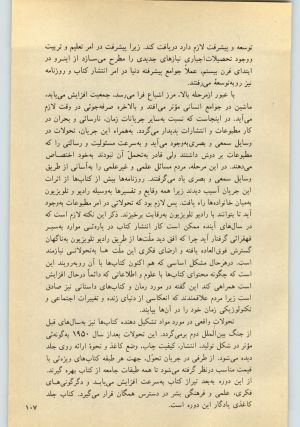 توسعه و پیشرفت لازم دارد دریافت کند. زیرا پیشرفت در امر تعلیم و تربیت
ووجود تحصیلات‌اجباری نیازهای جدیدی را مطرح می‌سازد از اینرو در
ابتدای قرن بیستم، عملاً جوامع پیشرفته دنیا در امر انتشار کتاب و روزنامه
نیز روبه‌توسعهٔ می‌رفتند.
با عبور ازمرحله بالا، مرز اشباع فرا می‌رسد، جمعیت افزایش می‌یابد،
ماشین در جوامع انسانی مؤثر می‌افتد و بالاخره صرفه‌جوئی در وقت لازم
می‌آید. در اینجاست که نسبت به‌سایر جریانات زمان، نارسائی و بحران در
کار مطبوعات و انتشارات پدیدار می‌گردد. به‌همراه این جریان، تحولات در
وسایل سمعی و بصری به‌وجود می‌آید و به‌سرعت مسئولیت و رسالتی را که
مطبوعات بر دوش داشتند ولی قادر به‌تحمل آن نبودند به‌خود اختصاص
می‌دهند. در این مرحله، مردم مسائل علمی و غیرعلمی را به‌آسانی از طریق
وسایل سمعی و بصری یاد می‌گرفتند. روزنامه‌ها بیش از کتاب‌ها از اثرات
این جریان آسیب دیدند زیرا همه وقایع و تفسیرها به‌وسیله رادیو و تلویزیون
به‌میان خانواده‌ها راه یافت. پس لازم بود که تحولاتی در مطبوعات به‌وجود
آید تا بتوانند با رادیو تلویزیون به‌رقابت برخیزند. ذکر این نکته لازم است که
در سال‌های آینده ممکن است کار انتشار کتاب در پاره‌ئی موارد به‌سیر
قهقرائی گرفتار آید چرا که افق دید ملت‌ها از طریق رادیو تلویزیون به‌ناگهان
گسترش فوق‌العاده یافته و ارضای فکری این ملت‌ها به‌تحولاتی نیازمند
است. درهرحال مشکل اساسی که هم اکنون کتاب‌ها با آن روبه‌رویند این
است که چگونه محتوای کتاب‌ها با علوم و اطلاعاتی که دائماً درحال افزایش
است همراهی کند. این گفته در مورد رمان و کتاب‌های داستانی نیز صادق
است زیرا مردم علاقمندند که انعکاسی از دنیای زنده و تغییرات اجتماعی و
تکنولوژیکی زمان خود را در آن‌ها بیابند.
تحولات واقعی در مورد مواد تشکیل دهنده کتاب‌ها نیز به‌سال‌های قبل
از جنگ بین‌الملل دوم برمی‌گردد. این تحولات بعداز سال ۱۹۵۰ به‌گونه‌ئی
مؤثر در شکل تولید، انتشار، کیفیت چاپ، وضع کاغذ و نحوهٔ ارائه روی جلد
دیده می‌شود. از طرفی در جریان تحول، جهت هر طبقه کتاب‌های ویژه‌ئی با
قیمت مناسب درنظر گرفته می‌شود تا همه طبقات جامعه از کتاب بهره گیرند.
از این دوره به‌بعد تیراژ کتاب به‌سرعت افزایش می‌یابد و دگرگونی‌های
فکری، علمی و فرهنگی بشر در دسترس همگان قرار می‌گیرد. کتاب جلد
کاغذی یادگار این دوره است.
۱۰۷